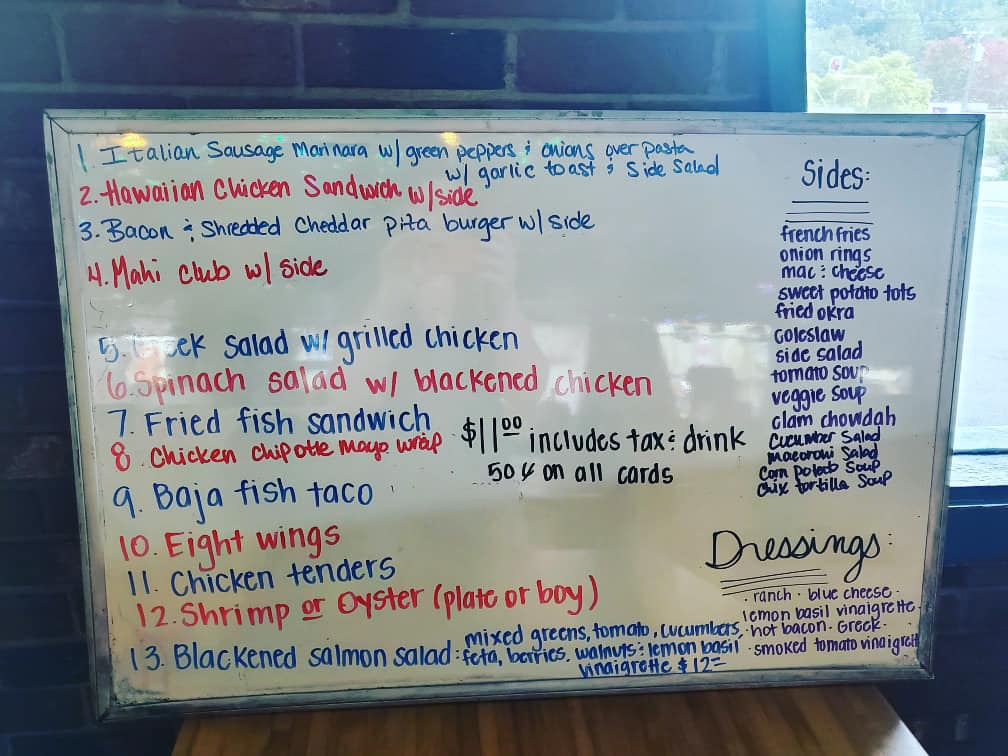 1. Italian Sausage Marinara w/ green peppers & onions over pasta
w/ garlic toast & Side Salad
2. Hawaiian Chicken Sandwich w/side
3. Bacon & Shredded Cheddar pita burger w/ side
4. Mahi club w/ side
5. Greek salad w/ grilled chicken
6. Spinach salad w/ blackened chicken
7. Fried fish sandwich
8. Chicken chipotle mayo wrap
9. Baja fish taco
10. Eight wings
11. Chicken tenders
12. Shrimp or Oyster (plate or boy)
13. Blackened salmon salad: mixed greens, tomato, cucumbers,
feta, berries, walnuts & lemon basil
vinaigrette $12=
$11.00 includes tax & drink
50¢ on all cards
Sides:
french fries
onion rings
mac & cheese
sweet potato tots
fried okra
coleslaw
side salad
tomato soup
veggie soup
clam chowdah
cucumber Salad
macaroni Salad
Corn potato Soup
Chix tortilla Soup
Dressings:
· ranch · blue cheese ·
lemon basil vinaigrette ·
· hot bacon · Greek ·
· smoked tomato vinaigrette